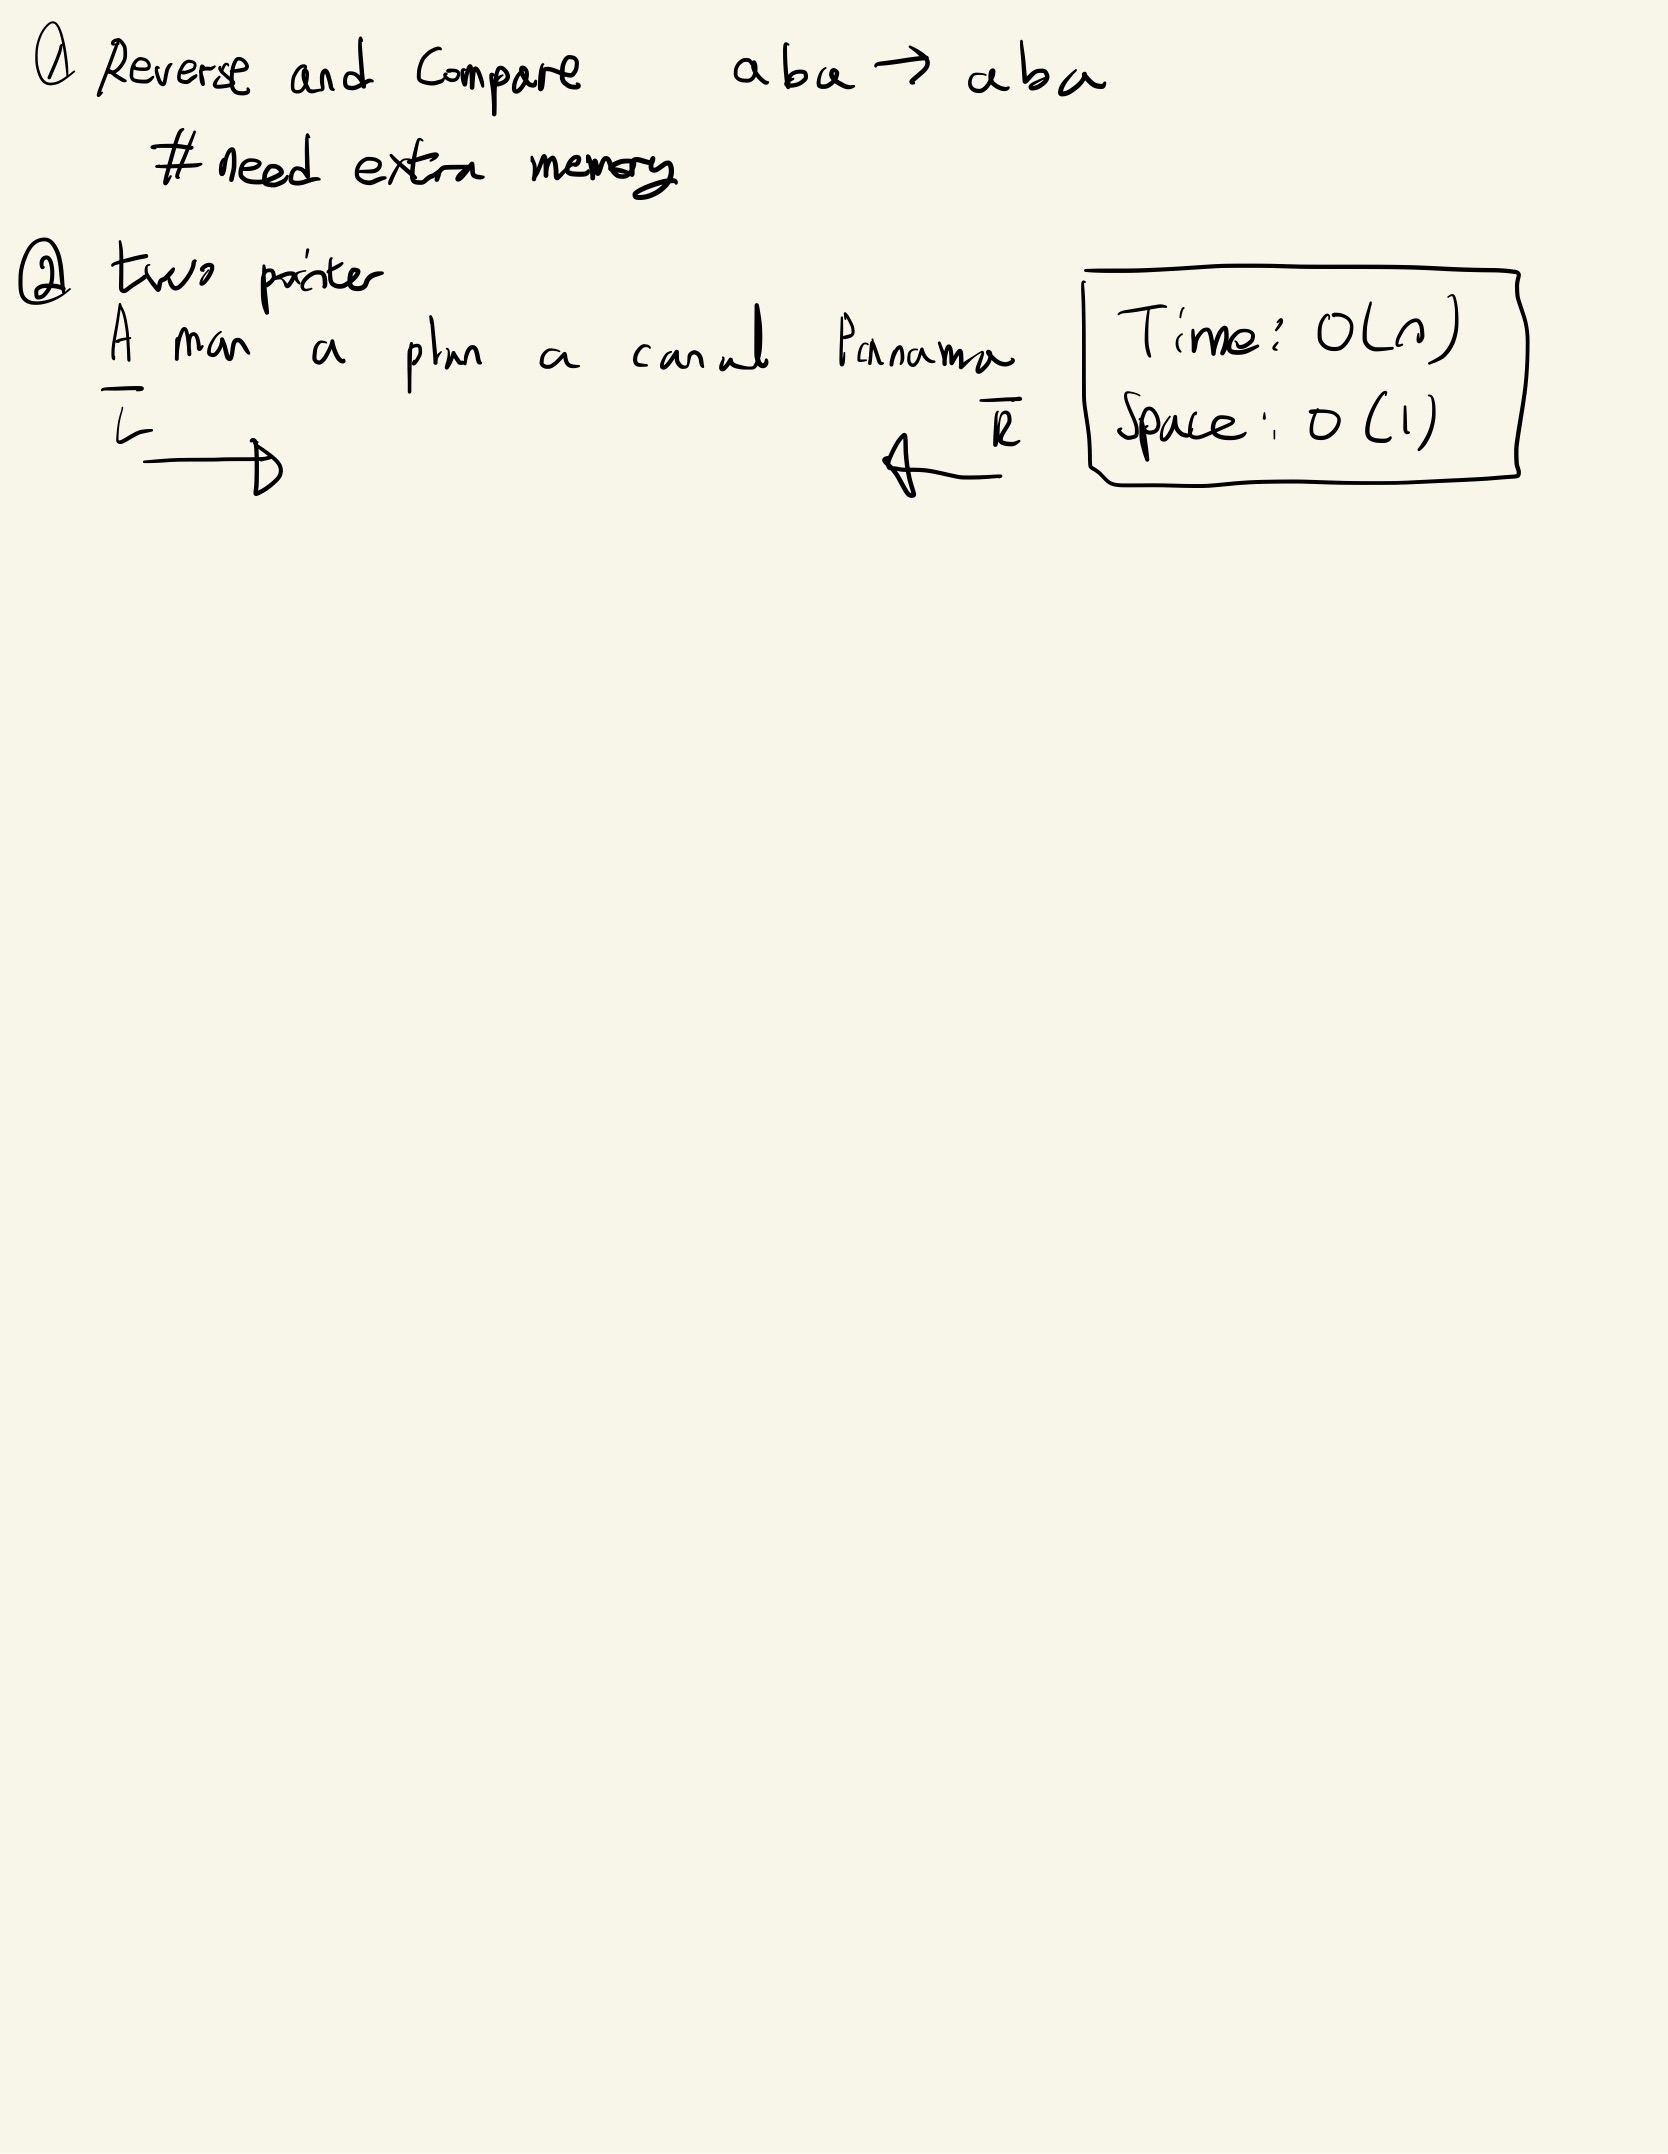 ① Reverse and Compare aba → aba
# need extra memory
② two pointer
A man a plan a canal Panama
L R
Time: O(n)
Space: O(1)